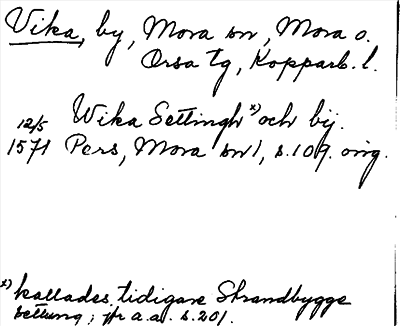 Vika, by, Mora sn, Mora o.
Orsa tg, Kopparb. l.
12/5 Wika Settingh x) och bij.
1571 Pers, Mora sn 1, s. 109. orig.
x) kallades tidigare Strandbygge
settung; jfr a.a. s. 201.